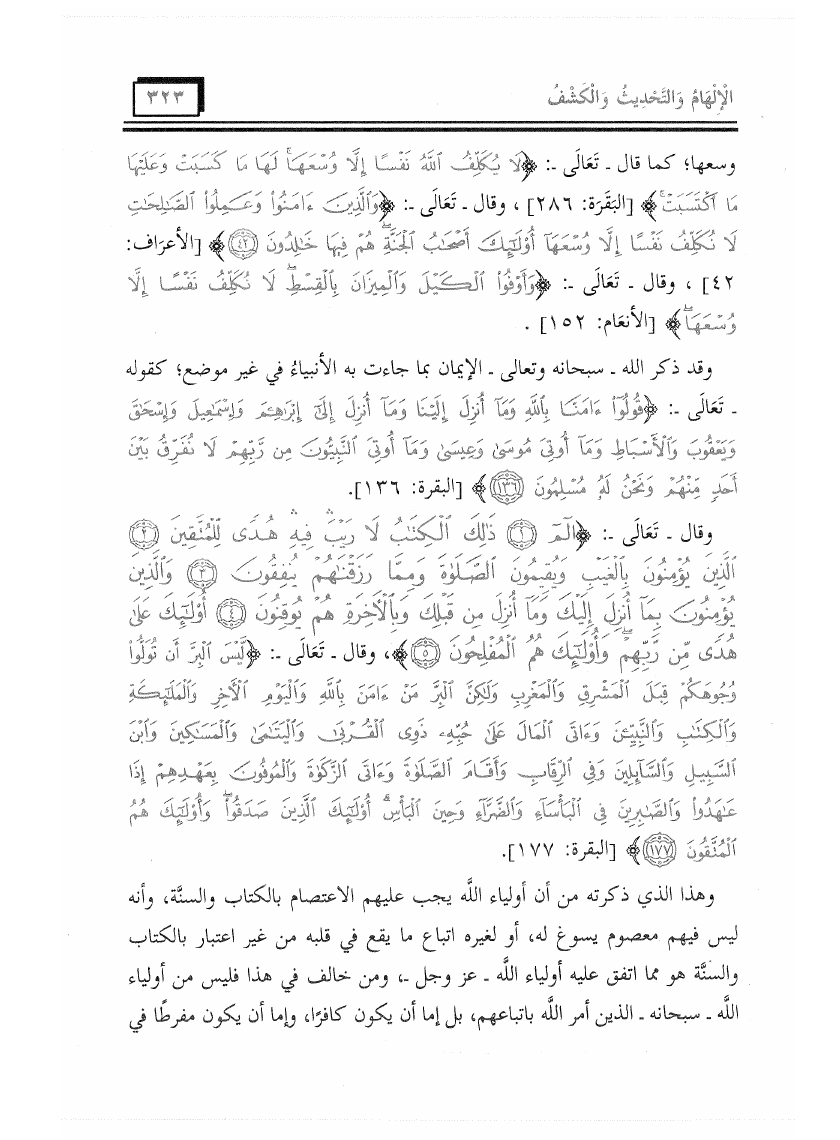 الْإِلْهَامُ وَالتَّحْدِيثُ وَالْكَشْفُ
٣٢٣
وسعها؛ كما قال ـ تَعَالَى ـ: ﴿لَا يُكَلِّفُ ٱللَّهُ نَفْسًا إِلَّا وُسْعَهَاۚ لَهَا مَا كَسَبَتْ وَعَلَيْهَا
مَا ٱكْتَسَبَتْۗ﴾ [البَقَرَة: ٢٨٦] ، وقال ـ تَعَالَى ـ: ﴿وَٱلَّذِينَ ءَامَنُوا۟ وَعَمِلُوا۟ ٱلصَّـٰلِحَـٰتِ
لَا نُكَلِّفُ نَفْسًا إِلَّا وُسْعَهَآ أُو۟لَـٰٓئِكَ أَصْحَـٰبُ ٱلْجَنَّةِۖ هُمْ فِيهَا خَـٰلِدُونَ ٤٢﴾ [الأعرَاف:
٤٢] ، وقال ـ تَعَالَى ـ: ﴿وَأَوْفُوا۟ ٱلْكَيْلَ وَٱلْمِيزَانَ بِٱلْقِسْطِۖ لَا نُكَلِّفُ نَفْسًا إِلَّا
وُسْعَهَاۖ﴾ [الأنعَام: ١٥٢] .
وقد ذكر الله ـ سبحانه وتعالى ـ الإيمان بما جاءت به الأنبياءُ في غير موضع؛ كقوله
ـ تَعَالَى ـ: ﴿قُولُوٓا۟ ءَامَنَّا بِٱللَّهِ وَمَآ أُنزِلَ إِلَيْنَا وَمَآ أُنزِلَ إِلَىٰٓ إِبْرَٰهِـۧمَ وَإِسْمَـٰعِيلَ وَإِسْحَـٰقَ
وَيَعْقُوبَ وَٱلْأَسْبَاطِ وَمَآ أُوتِىَ مُوسَىٰ وَعِيسَىٰ وَمَآ أُوتِىَ ٱلنَّبِيُّونَ مِن رَّبِّهِمْ لَا نُفَرِّقُ بَيْنَ
أَحَدٍ مِّنْهُمْ وَنَحْنُ لَهُۥ مُسْلِمُونَ ١٣٦﴾ [البقرة: ١٣٦].
وقال ـ تَعَالَى ـ: ﴿الٓمٓ ١ ذَٰلِكَ ٱلْكِتَـٰبُ لَا رَيْبَۛ فِيهِۛ هُدًى لِّلْمُتَّقِينَ ٢
ٱلَّذِينَ يُؤْمِنُونَ بِٱلْغَيْبِ وَيُقِيمُونَ ٱلصَّلَوٰةَ وَمِمَّا رَزَقْنَـٰهُمْ يُنفِقُونَ ٣ وَٱلَّذِينَ
يُؤْمِنُونَ بِمَآ أُنزِلَ إِلَيْكَ وَمَآ أُنزِلَ مِن قَبْلِكَ وَبِٱلْـَٔاخِرَةِ هُمْ يُوقِنُونَ ٤ أُو۟لَـٰٓئِكَ عَلَىٰ
هُدًى مِّن رَّبِّهِمْۖ وَأُو۟لَـٰٓئِكَ هُمُ ٱلْمُفْلِحُونَ ٥﴾، وقال ـ تَعَالَى ـ: ﴿لَّيْسَ ٱلْبِرَّ أَن تُوَلُّوا۟
وُجُوهَكُمْ قِبَلَ ٱلْمَشْرِقِ وَٱلْمَغْرِبِ وَلَـٰكِنَّ ٱلْبِرَّ مَنْ ءَامَنَ بِٱللَّهِ وَٱلْيَوْمِ ٱلْـَٔاخِرِ وَٱلْمَلَـٰٓئِكَةِ
وَٱلْكِتَـٰبِ وَٱلنَّبِيِّـۧنَ وَءَاتَى ٱلْمَالَ عَلَىٰ حُبِّهِۦ ذَوِى ٱلْقُرْبَىٰ وَٱلْيَتَـٰمَىٰ وَٱلْمَسَـٰكِينَ وَٱبْنَ
ٱلسَّبِيلِ وَٱلسَّآئِلِينَ وَفِى ٱلرِّقَابِ وَأَقَامَ ٱلصَّلَوٰةَ وَءَاتَى ٱلزَّكَوٰةَ وَٱلْمُوفُونَ بِعَهْدِهِمْ إِذَا
عَـٰهَدُوا۟ وَٱلصَّـٰبِرِينَ فِى ٱلْبَأْسَآءِ وَٱلضَّرَّآءِ وَحِينَ ٱلْبَأْسِۗ أُو۟لَـٰٓئِكَ ٱلَّذِينَ صَدَقُوا۟ۖ وَأُو۟لَـٰٓئِكَ هُمُ
ٱلْمُتَّقُونَ ١٧٧﴾ [البقرة: ١٧٧].
وهذا الذي ذكرته من أن أولياء اللَّه يجب عليهم الاعتصام بالكتاب والسنَّة، وأنه
ليس فيهم معصوم يسوغ له، أو لغيره اتباع ما يقع في قلبه من غير اعتبار بالكتاب
والسنَّة هو مما اتفق عليه أولياء اللَّه ـ عز وجل ـ، ومن خالف في هذا فليس من أولياء
اللَّه ـ سبحانه ـ الذين أمر اللَّه باتباعهم، بل إما أن يكون كافرًا، وإما أن يكون مفرطًا في